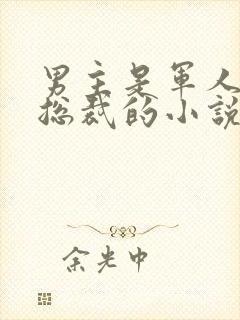 男主是军人
总裁的小說
余光中